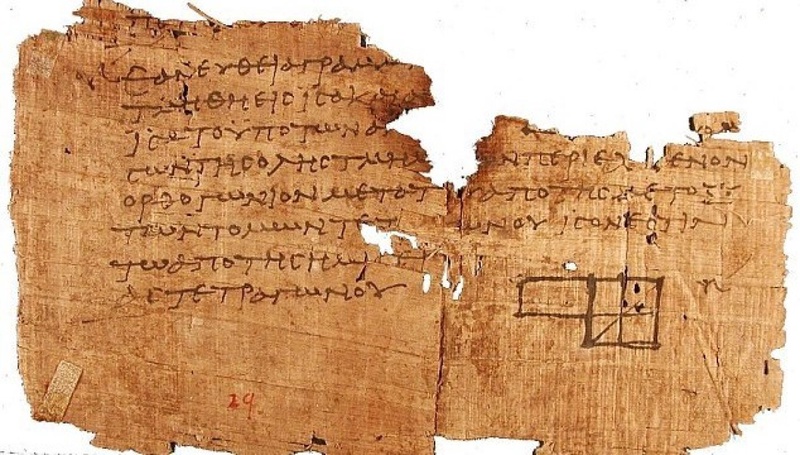 ΕΑΝ ΕΥΘΕΙΑ ΓΡΑΜ
ΤΜΗΘΗ ΕΙϹ ΙϹΑ ΚΑΙ Α
ΙϹΑ ΤΟ ΥΠΟ ΤΩΝ Α
ϹΩΝ ΤΗϹ ΟΛΗϹ ΤΜΗΜ ΩΝ ΠΕΡΙΕΧ ΜΕΝΟΝ
ΟΡΘΟΓΩΝΙΟΝ ΜΕΤΑ ΤΟΥ ΑΠΟ ΤΗϹ ΜΕΤΟΞΥ
ΤΩΝ ΤΟΜΩΝ ΤΕΤ ΩΝΟΥ ΙϹΟΝ ΕϹΤΙΝ
ΤΩ ΑΠΟ ΤΗϹ ΗΜΙ
ΑϹ ΤΕΤΡΑΓΩΝΟΥ
29